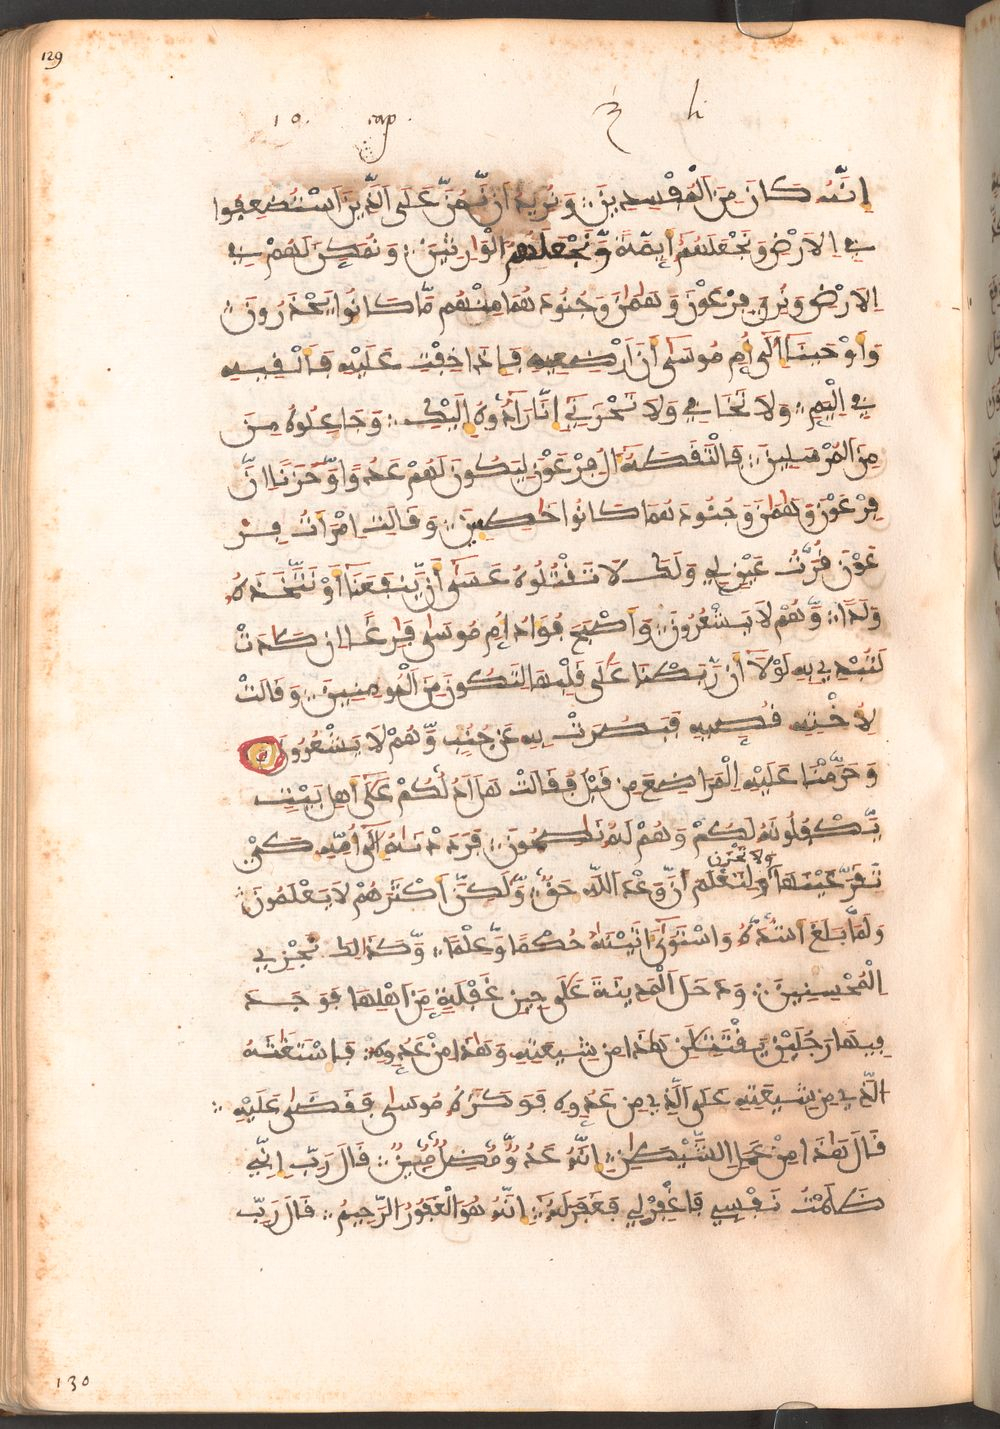 129
10. cap. li
إنَّهُ كَانَ مِنَ الْمُفْسِدِينَ وَنُرِيدُ أَن نَّمُنَّ عَلَى الَّذِينَ اسْتُضْعِفُوا
فِي الاَرْضِ وَنَجْعَلَهُمُ أَيِمَّةً وَّنَجْعَلَهُمُ الْوَارِثِينَ وَنُمَكِّنَ لَهُمْ فِي
الاَرْضِ وَنُرِيَ فِرْعَوْنَ وَهَامَانَ وَجُنُودَهُمَا مِنْهُم مَّا كَانُوا يَحْذَرُونَ
وَأَوْحَيْنَا إِلَى أُمِّ مُوسَى أَنَ ارْضِعِيهِ فَإِذَا خِفْتِ عَلَيْهِ فَأَلْقِيهِ
فِي الْيَمِّ وَلَا تَخَافِي وَلَا تَحْزَنِي إِنَّا رَادُّوهُ إِلَيْكِ وَجَاعِلُوهُ مِنَ
مِنَ الْمُرْسَلِينَ فَالْتَقَطَهُ ءَالُ فِرْعَوْنَ لِيَكُونَ لَهُمْ عَدُوًّا وَّحَزَنًا إِنَّ
فِرْعَوْنَ وَهَامَانَ وَجُنُودَهُمَا كَانُوا خَاطِئِينَ وَقَالَتِ امْرَأَتُ فِرْ
عَوْنَ قُرَّتُ عَيْنٍ لِي وَلَكَ لَا تَقْتُلُوهُ عَسَى أَنْ يَّنفَعَنَا أَوْ نَتَّخِذَهُ
وَلَدًا وَّهُمْ لَا يَشْعُرُونَ وَأَصْبَحَ فُؤَادُ أُمِّ مُوسَى فَارِغًا إِن كَادَتْ
لَتُبْدِي بِهِ لَوْلَا أَن رَّبَطْنَا عَلَى قَلْبِهَا لِتَكُونَ مِنَ الْمُومِنِينَ وَقَالَتْ
لِأُخْتِهِ قُصِّيهِ فَبَصُرَتْ بِهِ عَن جُنُبٍ وَّهُمْ لَا يَشْعُرُونَ
وَحَرَّمْنَا عَلَيْهِ الْمَرَاضِعَ مِن قَبْلُ فَقَالَتْ هَلَ ادُلُّكُمْ عَلَى أَهْلِ بَيْتٍ
يَّكْفُلُونَهُ لَكُمْ وَهُمْ لَهُ نَاصِحُونَ فَرَدَدْنَاهُ إِلَى أُمِّهِ كَيْ
تَقَرَّ عَيْنُهَا وَلَا تَحْزَن وَلِتَعْلَمَ أَنَّ وَعْدَ اللَّهِ حَقٌّ وَّلَكِنَّ أَكْثَرَهُمْ لَا يَعْلَمُونَ
وَلَمَّا بَلَغَ أَشُدَّهُ وَاسْتَوَى ءَاتَيْنَاهُ حُكْمًا وَّعِلْمًا وَّكَذَلِكَ نَجْزِي
الْمُحْسِنِينَ وَدَخَلَ الْمَدِينَةَ عَلَى حِينِ غَفْلَةٍ مِّنَ اهْلِهَا فَوَجَدَ
فِيهَا رَجُلَيْنِ يَقْتَتِلَانِ هَذَا مِن شِيعَتِهِ وَهَذَا مِنْ عَدُوِّهِ فَاسْتَغَاثَهُ
الَّذِي مِن شِيعَتِهِ عَلَى الَّذِي مِنْ عَدُوِّهِ فَوَكَزَهُ مُوسَى فَقَضَى عَلَيْهِ
قَالَ هَذَا مِنْ عَمَلِ الشَّيْطَانِ إِنَّهُ عَدُوٌّ مُّضِلٌّ مُّبِينٌ قَالَ رَبِّ إِنِّي
ظَلَمْتُ نَفْسِي فَاغْفِرْ لِي فَغَفَرَ لَهُ إِنَّهُ هُوَ الْغَفُورُ الرَّحِيمُ قَالَ رَبِّ
130